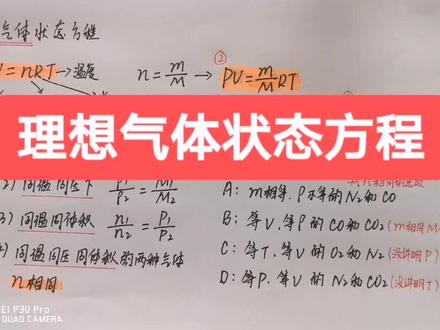 气体状态方程
= nRT → 温度
n = m/M → ② PV = m/M RT
理想气体状态方程
2) 同温同压下 ρ1/ρ2 = M1/M2
3) 同温同体积 n1/n2 = P1/P2
) 同温同压同体积的两种气体
n相同
A: m相等、ρ不等的N2和CO
B: 等V、等ρ的CO和CO2 (m相同
C: 等T、等V的O2和N2 (没讲明P)
D: 等P、等V的N2和CO2 (没讲明T)
EI P30 Pro
QUAD CAMERA